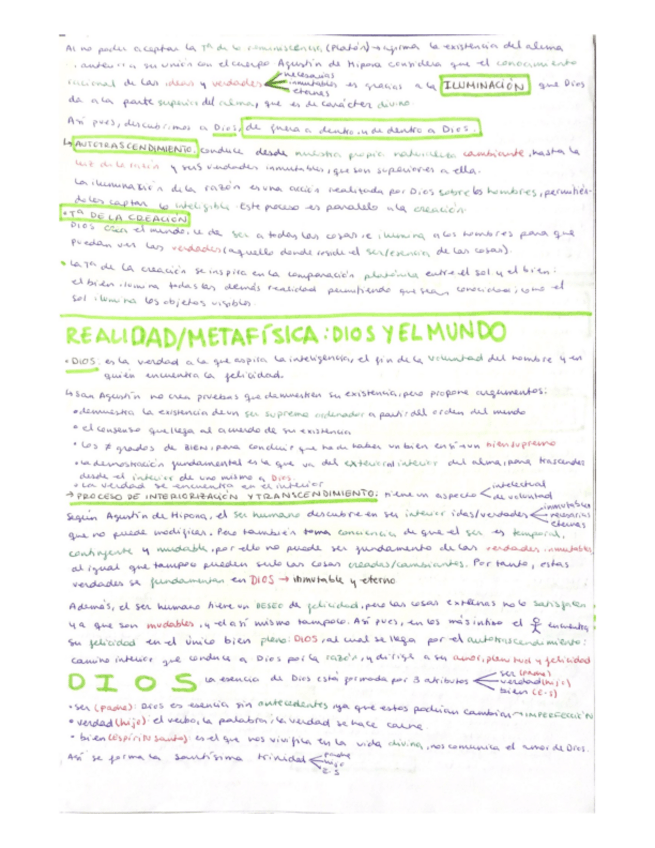 Al no poder aceptar la Tª de la reminiscencia (Platón) → afirma la existencia del alma
anterior a su unión con el cuerpo Agustín de Hipona considera que el conocimiento
racional de las ideas y verdades necesarias inmutables eternas es gracias a la ILUMINACIÓN que Dios
da a la parte superior del alma, que es de carácter divino.
Así pues, descubrimos a Dios, de fuera a dentro, y de dentro a Dios.
↳ AUTOTRASCENDIMIENTO: conduce desde nuestra propia naturaleza cambiante, hasta la
luz de la razón y sus verdades inmutables, que son superiores a ella.
La iluminación de la razón es una acción realizada por Dios sobre los hombres, permitién-
doles captar lo inteligible. Este proceso es paralelo a la creación.
• Tª DE LA CREACIÓN
Dios crea el mundo, le da ser a todas las cosas, e ilumina a los hombres para que
puedan ver las verdades (aquello donde reside el ser/esencia de las cosas).
• La Tª de la creación se inspira en la comparación platónica entre el sol y el bien:
el bien ilumina todas las demás realidad permitiendo que sean conocidas; como el
sol ilumina los objetos visibles.
REALIDAD/METAFÍSICA: DIOS Y EL MUNDO
• DIOS: es la verdad a la que aspira la inteligencia, el fin de la voluntad del hombre y en
quién encuentra la felicidad.
↳ San Agustín no crea pruebas que demuestren su existencia, pero propone argumentos:
• demuestra la existencia de un ser supremo ordenador a partir del orden del mundo
• el consenso que llega al acuerdo de su existencia
• los ≠ grados de BIEN, para concluir que ha de haber un bien en sí → un bien supremo
• la demostración fundamental es la que va del exterior al interior del alma, para trascender
desde el interior de uno mismo a Dios.
• la verdad se encuentra en el interior
→ PROCESO DE INTERIORIZACIÓN Y TRANSCENDIMIENTO: tiene un aspecto intelectual de voluntad
Según Agustín de Hipona, el ser humano descubre en su interior idas/verdades inmutables necesarias eternas
que no puede modificar. Pero también toma conciencia de que el ser es temporal,
contingente y mudable, por ello no puede ser fundamento de las verdades inmutables,
al igual que tampoco pueden serlo las cosas creadas/cambiantes. Por tanto, estas
verdades se fundamentan en DIOS → inmutable y eterno
Además, el ser humano tiene un DESEO de felicidad, pero las cosas externas no lo satisfacen
ya que son mudables, y el así mismo tampoco. Así pues, en lo más íntimo el encuentra
su felicidad en el único bien pleno: DIOS, al cual se llega por el autotrascendimiento:
camino interior que conduce a Dios por la razón, y dirige a su amor, plenitud y felicidad
DIOS La esencia de Dios está formada por 3 atributos ser (padre) verdad (hijo) bien (E-S)
• ser (padre): Dios es esencia sin antecedentes ya que estos podrían cambiar → IMPERFECCIÓN
• verdad (hijo): el verbo, la palabra; la verdad se hace carne
• bien (espíritu santo): es el que nos vivifica en la vida divina, nos comunica el amor de Dios.
Así se forma la santísima trinidad padre hijo E-S